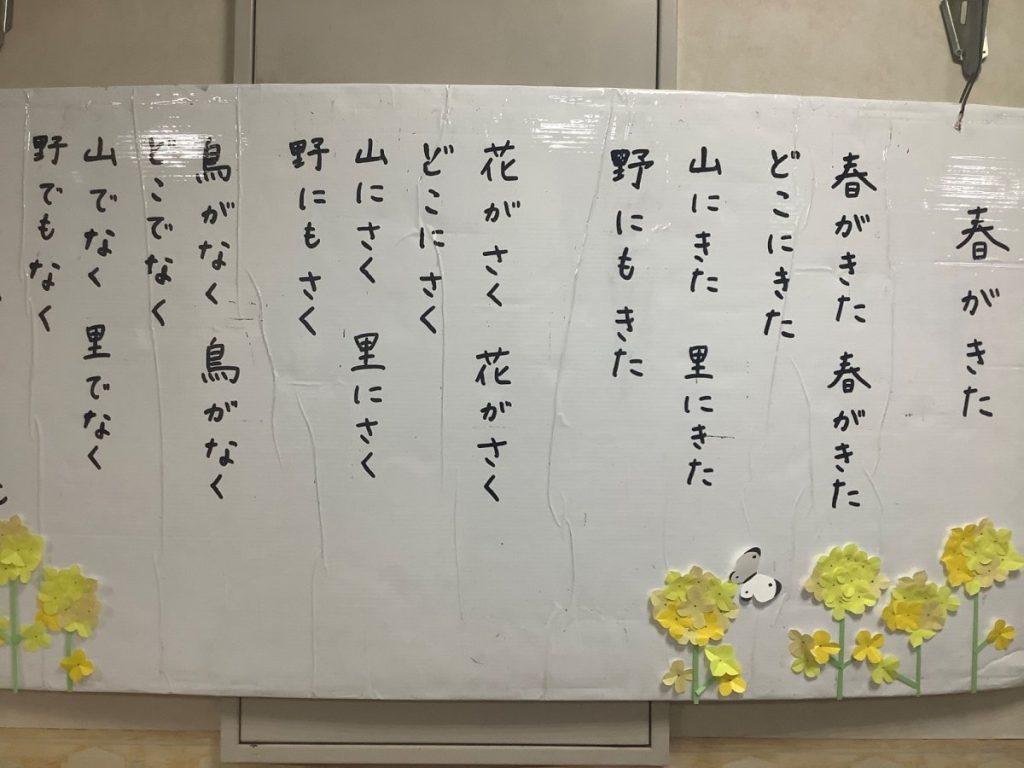 春がきた
春がきた 春がきた
どこにきた
山にきた 里にきた
野にもきた
花がさく 花がさく
どこにさく
山にさく 里にさく
野にもさく
鳥がなく 鳥がなく
どこでなく
山でなく 里でなく
野でもなく